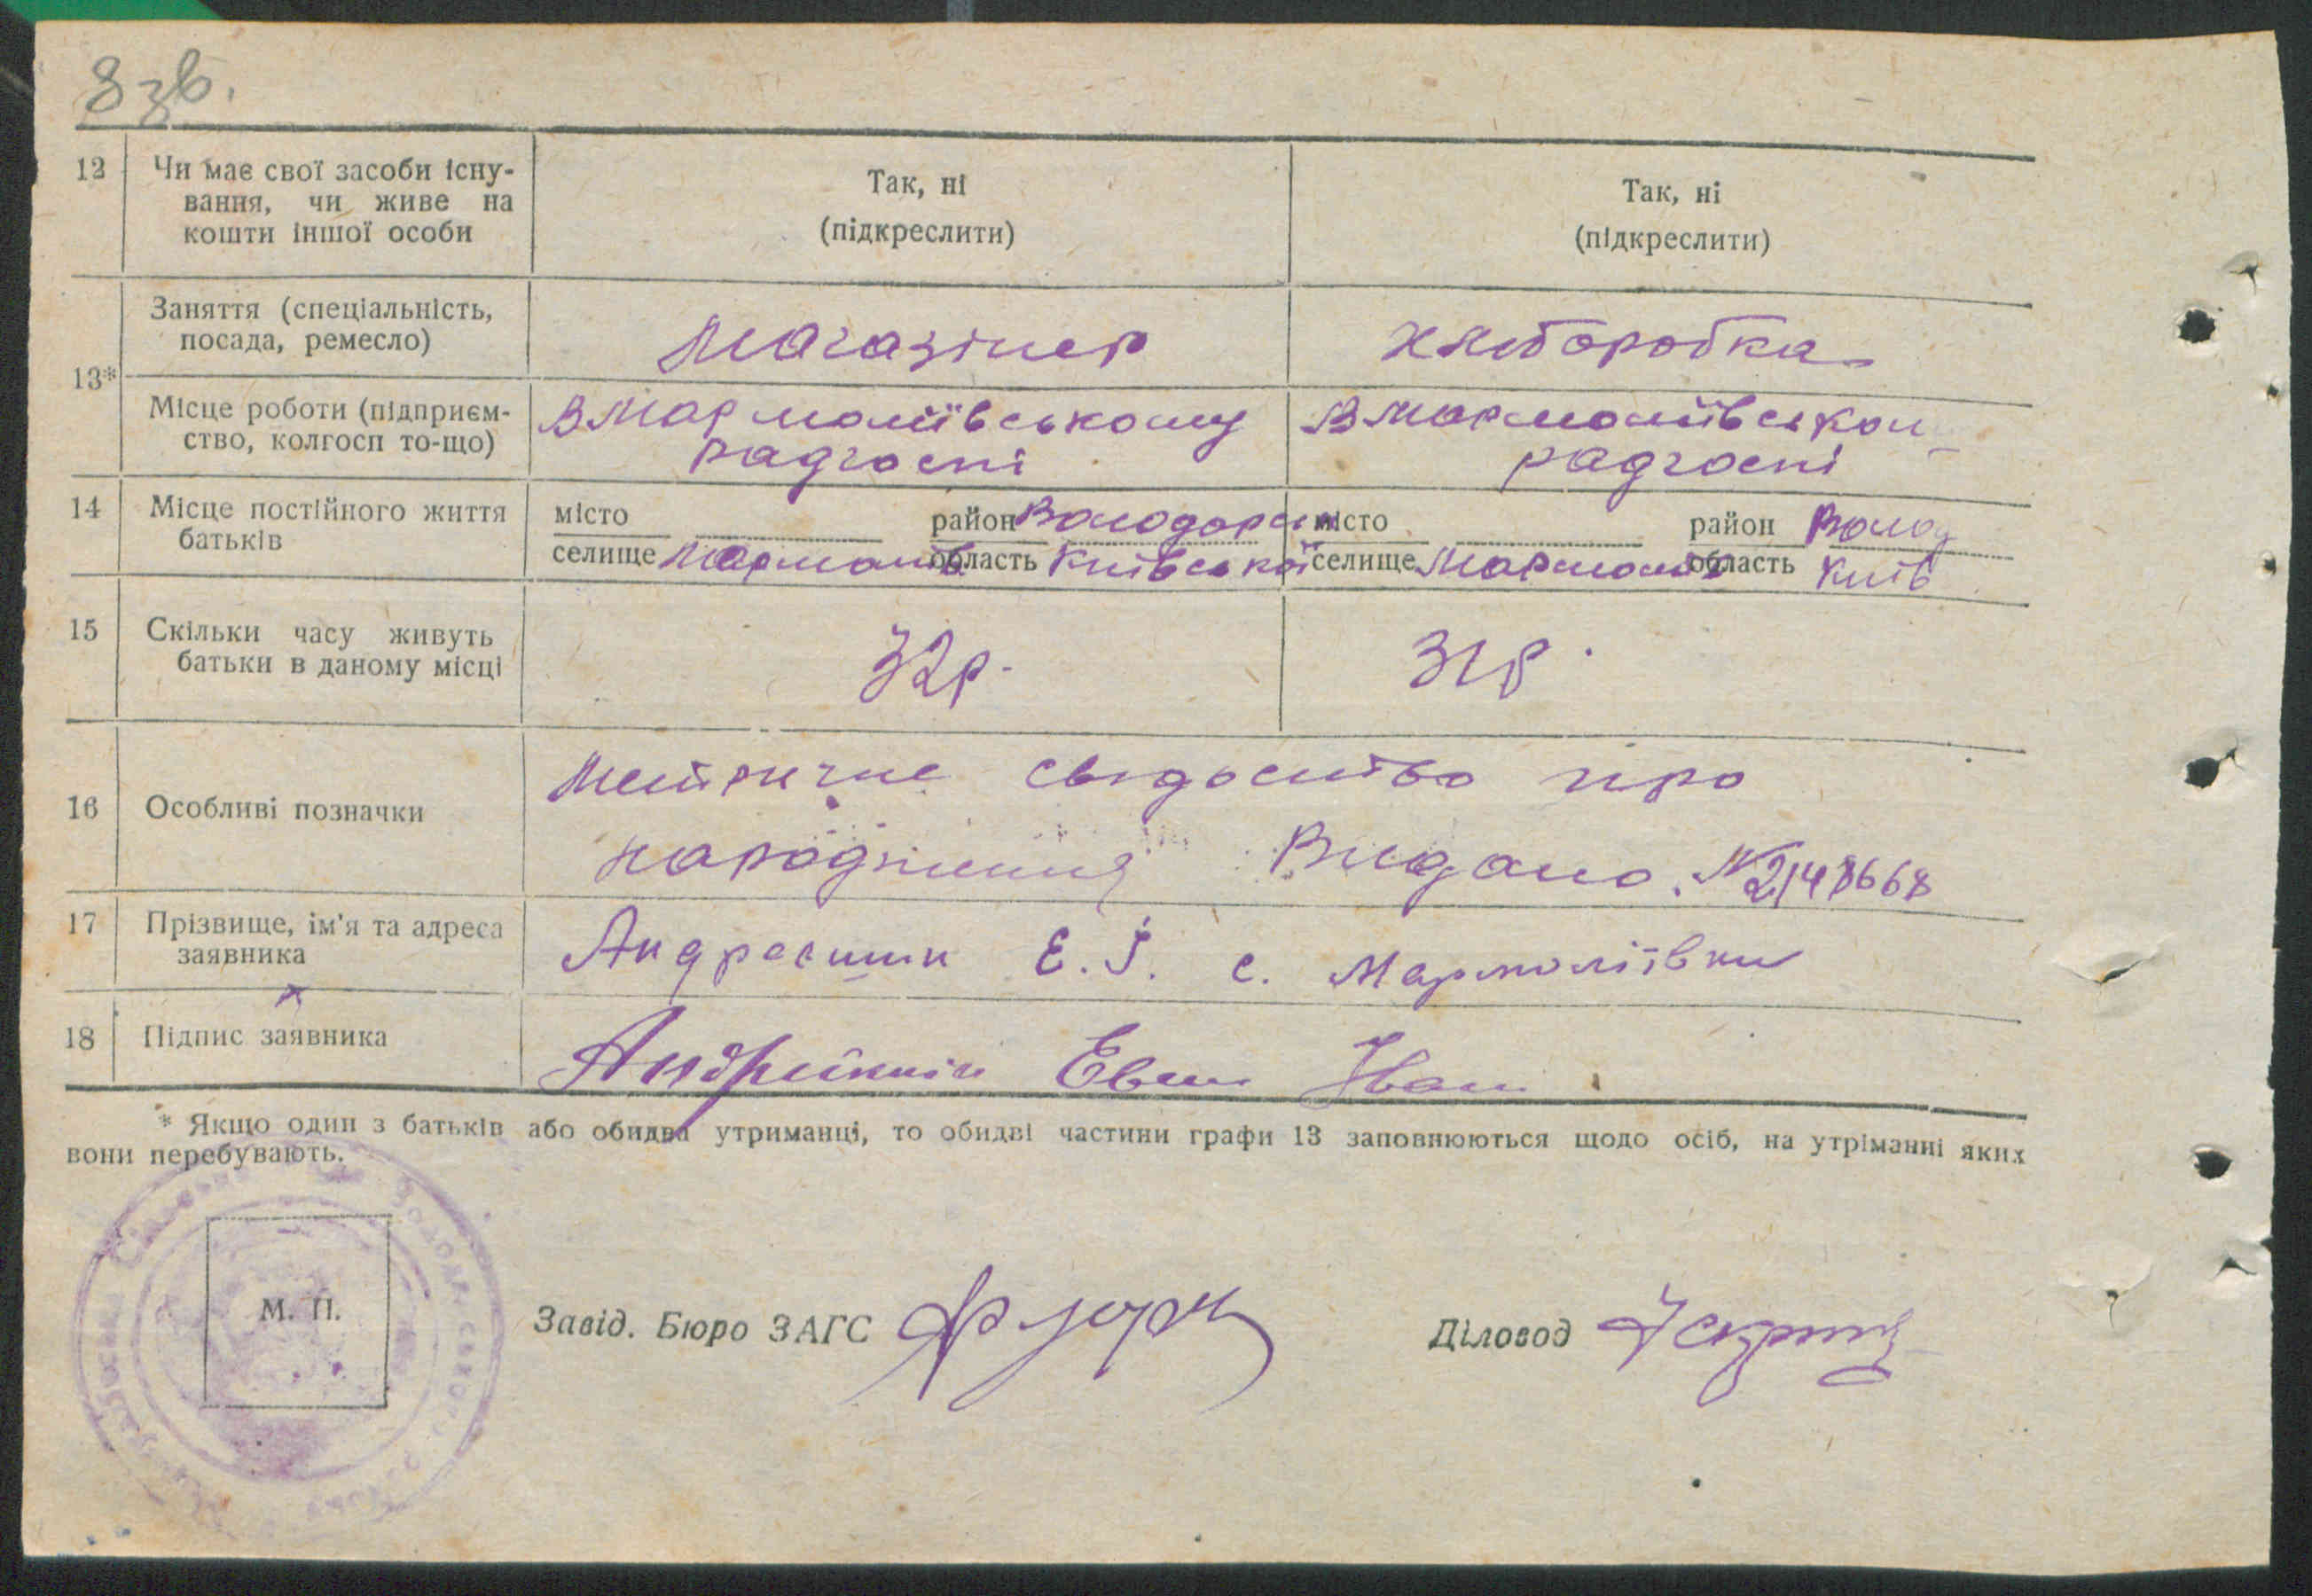 8 зв.
12 Чи має свої засоби існу-
вання, чи живе на
кошти іншої особи
Так, ні
(підкреслити)
Так, ні
(підкреслити)
13*
Заняття (спеціальність,
посада, ремесло)
Магазінер
хліборобка
Місце роботи (підприєм-
ство, колгосп то-що)
В Мармоліївському
радгоспі
В Мармоліївськом
радгоспі
14 Місце постійного життя
батьків
місто район Володарськ
селище Мармолиїв область Київської
місто район Волод
селище Мармолиїв область Київ
15 Скільки часу живуть
батьки в даному місці
32р.
31р.
16 Особливі позначки
Метричне свідоство про
народження Видано. №2148668
17 Прізвище, ім'я та адреса
заявника
Андреєшин Є. І. с. Мармоліївки
18 Підпис заявника
Іван
* Якщо один з батьків або обидва утриманці, то обидві частини графи 13 заповнюються щодо осіб, на утріманні яких
вони перебувають.
М. П.
Завід. Бюро ЗАГС
Діловод